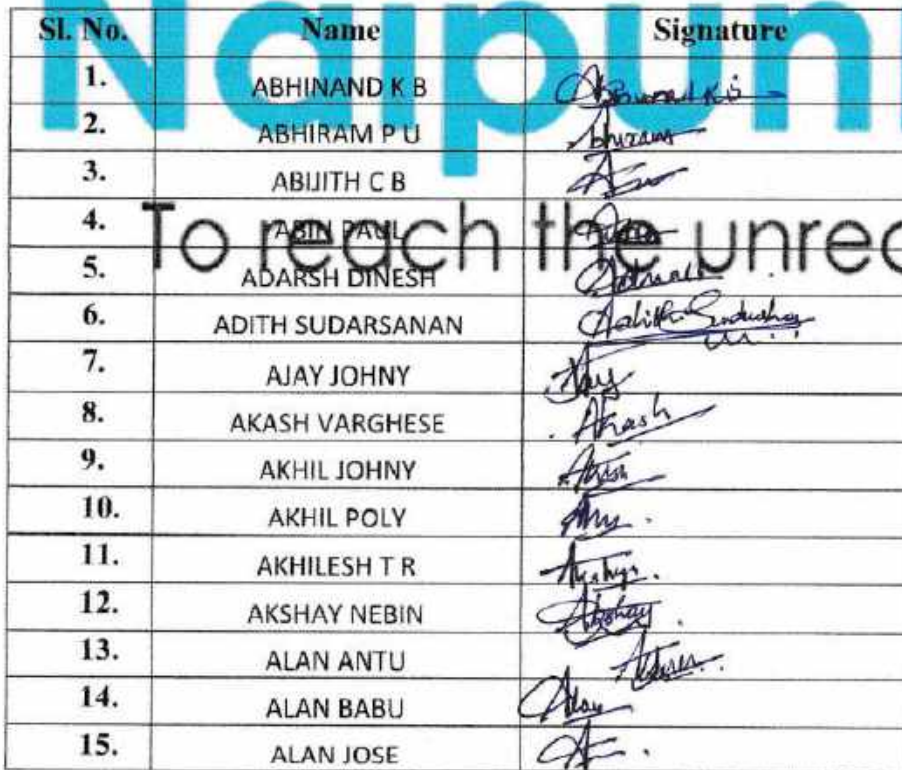 Naipun
To reach the unrea
Sl. No. Name Signature
1. ABHINAND K B Abhinand K B
2. ABHIRAM P U Abhiram
3. ABIJITH C B
4. ABIN PAUL
5. ADARSH DINESH
6. ADITH SUDARSANAN Adith
7. AJAY JOHNY Ajay
8. AKASH VARGHESE Akash
9. AKHIL JOHNY
10. AKHIL POLY
11. AKHILESH T R
12. AKSHAY NEBIN Akshay
13. ALAN ANTU
14. ALAN BABU Alan
15. ALAN JOSE